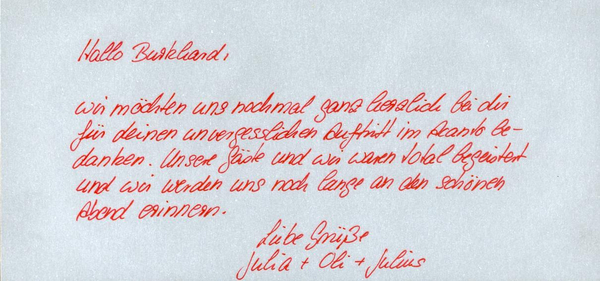 Hallo Burkhard,
wir möchten uns nochmal ganz herzlich bei dir
für deinen unvergesslichen Auftritt im Acanto be-
danken. Unsere Gäste und wir waren total begeistert
und wir werden uns noch lange an den schönen
Abend erinnern.
Liebe Grüße
Julia + Oli + Julius